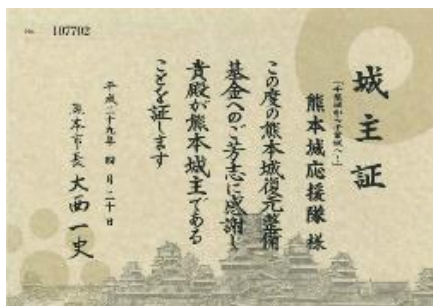 No. 107702
城主証
「千葉城から千葉城へ！」
熊本城応援隊 様
この度の熊本城復元整備
基金へのご芳志に感謝し
貴殿が熊本城主である
ことを証します
平成二十九年 四月二十日
熊本市長 大西一史